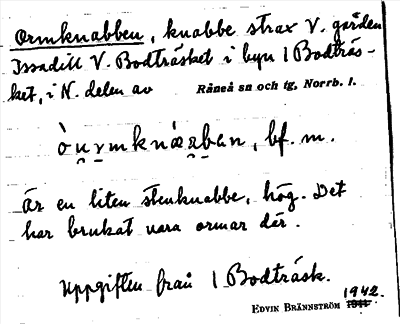 Ormknabben, knabbe strax V. gården
Issadill V. Bodträsket i byn 1 Bodträs-
ket, i N. delen av Råneå sn och tg, Norrb. l.
bf. m.
Är en liten stenknabbe, hög. Det
har brukat vara ormar där.
Uppgiften från 1 Bodträsk.
1942.
EDVIN BRÄNNSTRÖM 1941